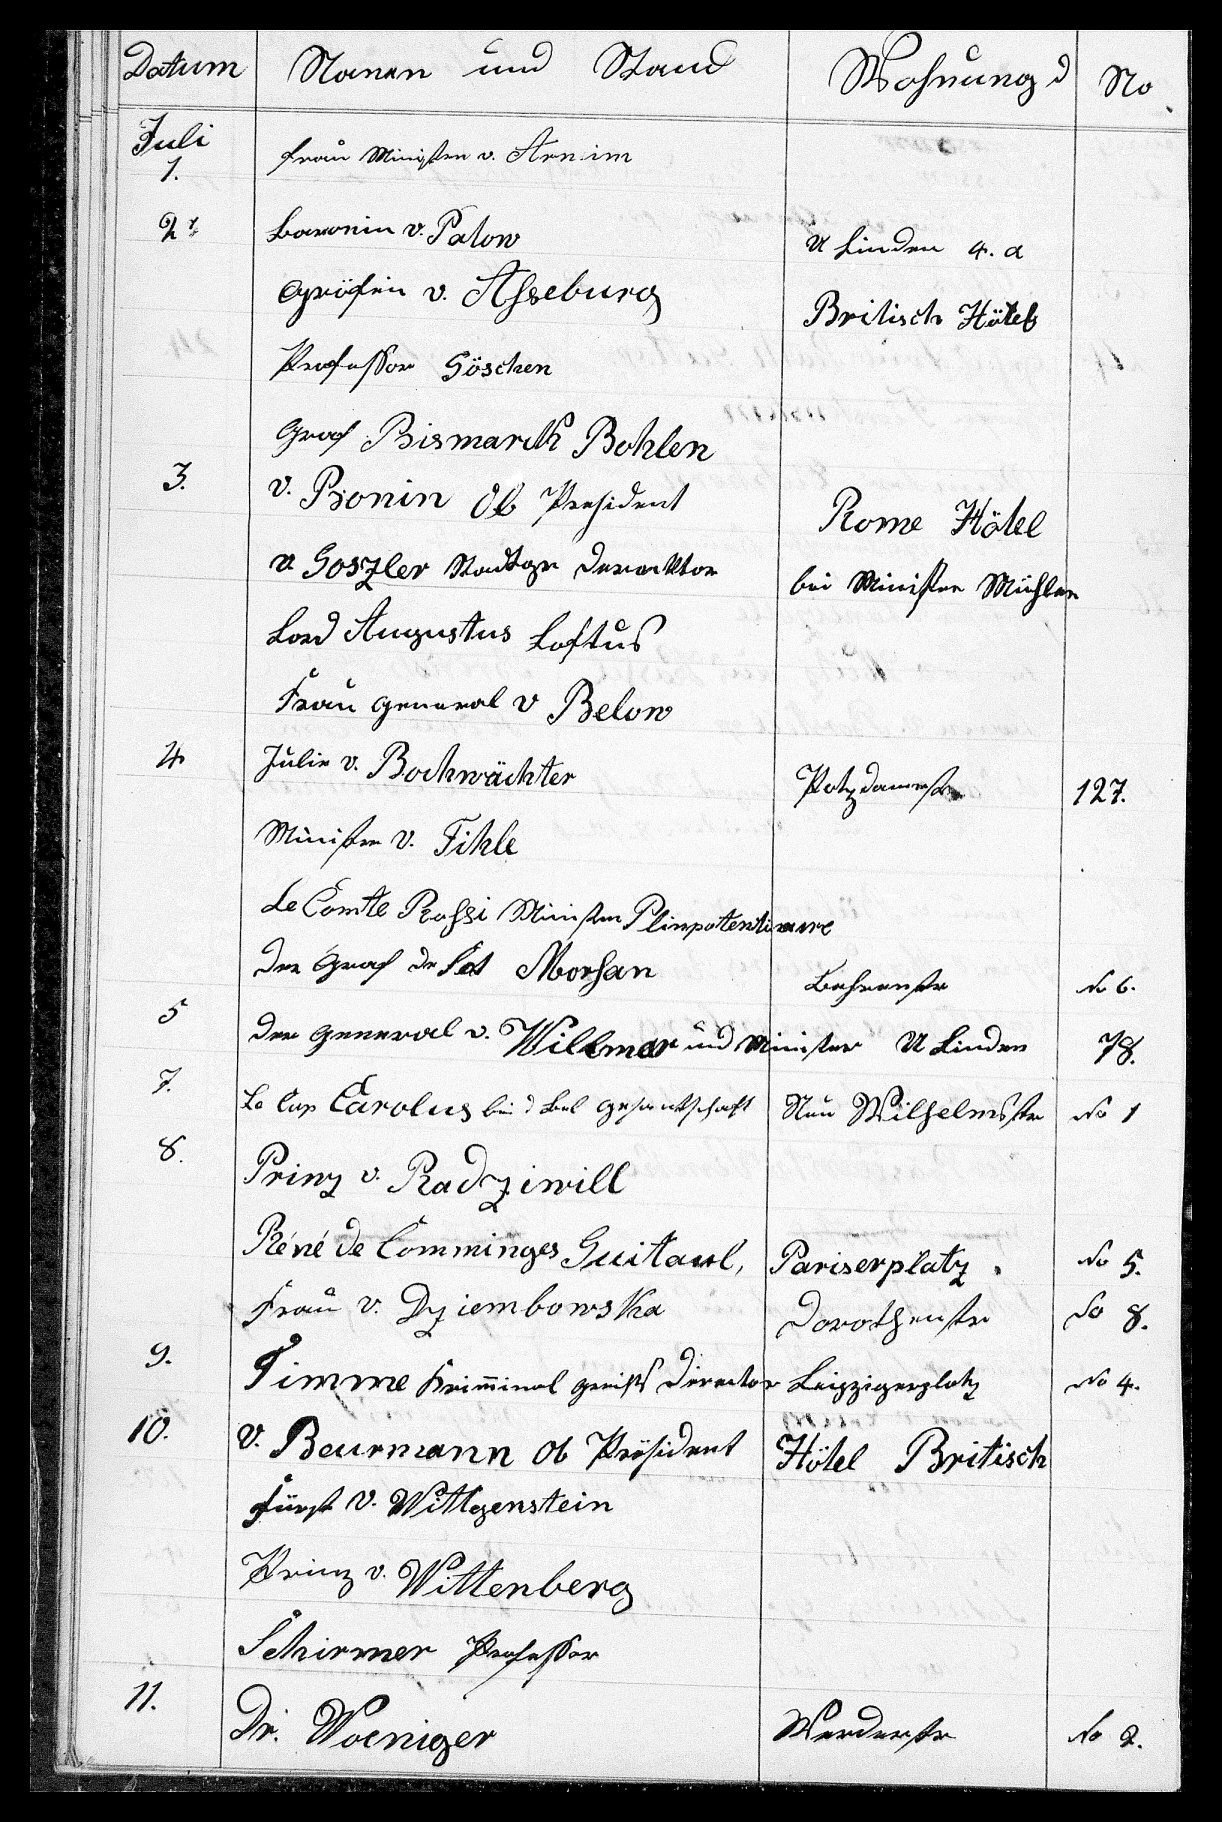 Datum Namen und Stand Wohnung d No
Juli
1. Frau Minister v. Arnim
2t Baronin v. Patow U Linden 4. a
Gräfin v. Asseburg Britisch Hôtel
Professor Göschen
Graf Bismarck Bohlen
3. v. Bonin Ob President Rome Hôtel
v. Goszler bei Minister Mühler
Lord Augustus Loftus
Frau General v Below
4 Julie v. Bockwächter Potzdamerstr 127.
Minister v. Tihle
Le Comte Rossi Minister Plinpotentiaire
der Graf de Morhan Behrenstr No 6.
5 der General v. Willmar und Minister U Linden 78.
7. Le Cap Carolus bei d Bel Gesantschaft Neu Wilhelmstr No 1
8. Prinz v. Radziwill
Réné de Comminges Guitaud, Pariserplatz. No 5.
Frau v. Dziembowska Dorothenstr No 8.
9. Timme Kriminal Gerichts Director Leipzigerplatz No 4.
10. v. Beurmann Ob Präsident Hôtel Britisch
Fürst v. Wittgenstein
Prinz v. Wittenberg
Schirmer Professor
11. Dr. Woeniger Werderstr No 2.